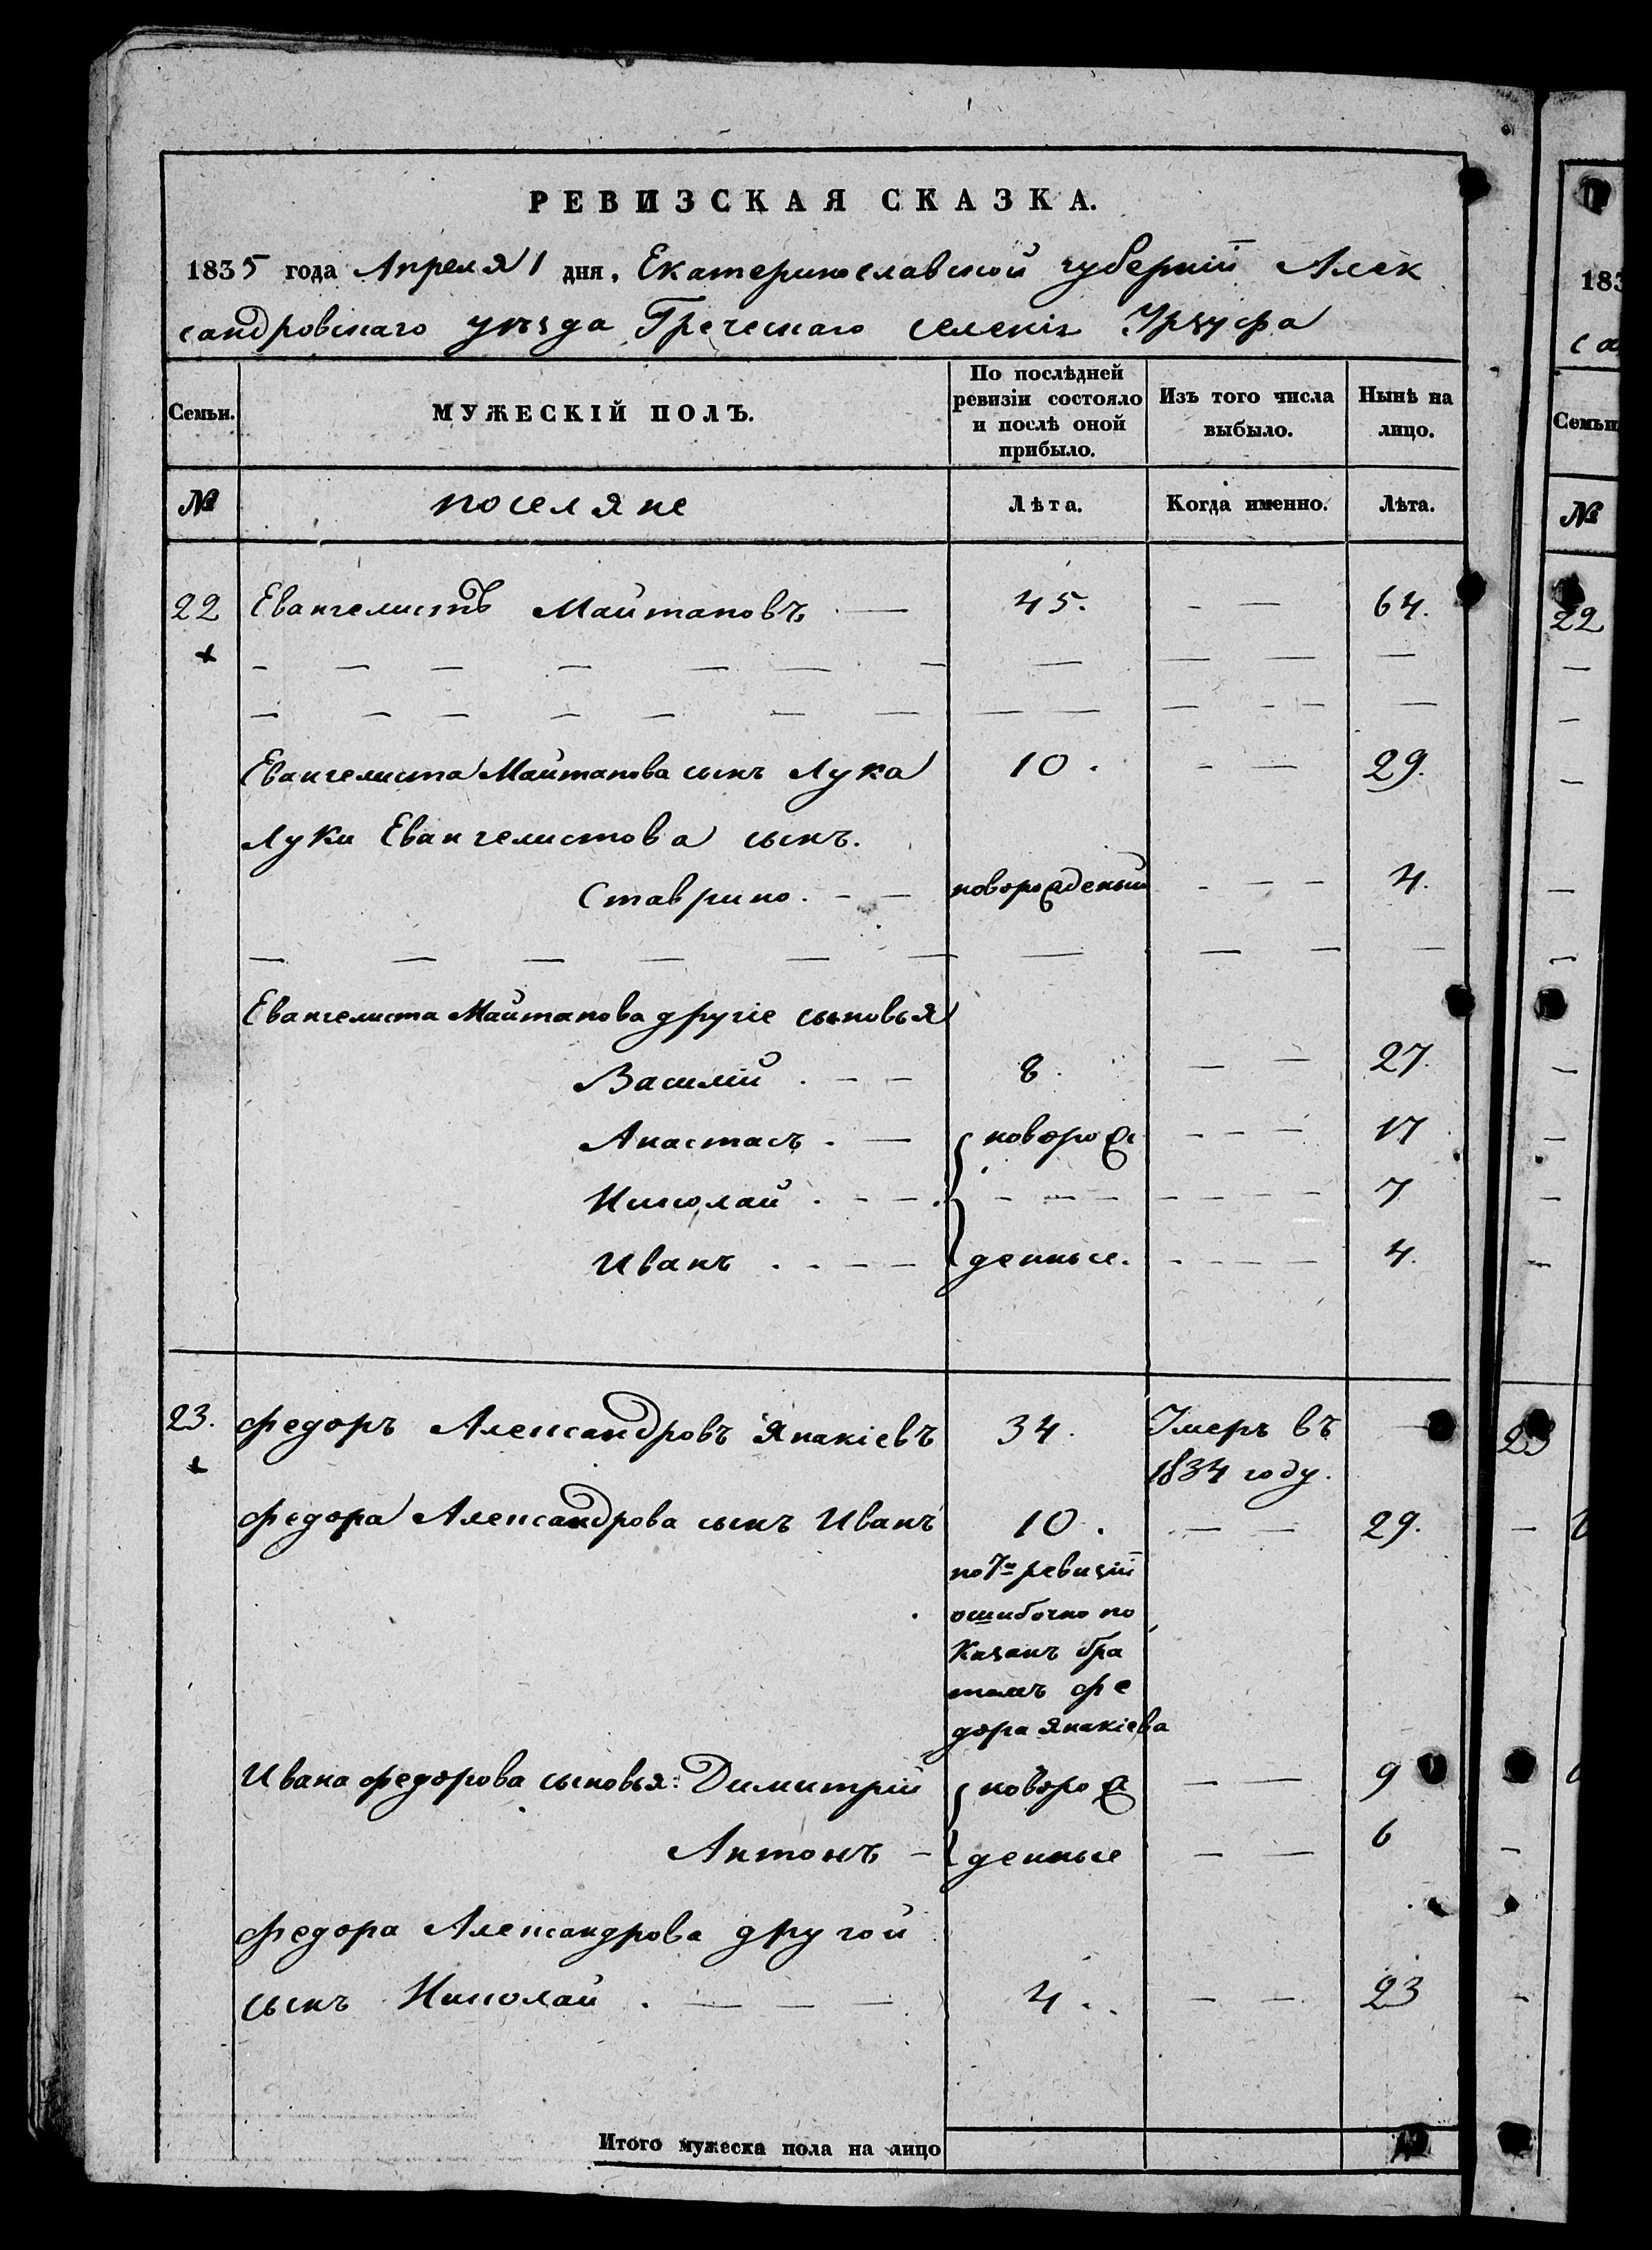 РЕВИЗСКАЯ СКАЗКА.
1835 года Апреля 1 дня, Екатеринославской губернiи Алек
сандровскаго уѣзда Греческаго селенiя Урзуфа
Семьи.
МУЖЕСКIЙ ПОЛЪ.
По послѣдней ревизiи состояло и послѣ оной прибыло.
Изъ того числа выбыло.
Нынѣ на лицо.
№ поселяне Лѣта. Когда именно. Лѣта.
22 Евангелистъ Майтаповъ — 45. — — 64.
Евангелиста Майтапова сынъ Лука 10. - — 29.
Луки Евангелистова сынъ.
Ставрино. - — новорожденый - — — 4.
Евангелиста Майтапова другiе сыновья
Василiй . - - 8. — — 27.
Анастасъ . — новорож - - - 17
Николай . - - - - - - - - - 7
Иванъ . - - - денные. - - - - 4.
23. Федоръ Александровъ Янакiевъ 34. Умеръ въ —
1834 году.
Федора Александрова сынъ Иванъ 10. — — 29.
по 7й ревизiи
ошибочно по
казанъ бра
томъ Фе
дора Янакiева
Ивана Федорова сыновья: Димитрiй новорож — — 9
Антонъ - денные — — 6
Федора Александрова другой
сынъ Николай . — — — 4. . — — 23
Итого мужеска пола на лицо
183
са
Семьи
№
22
23